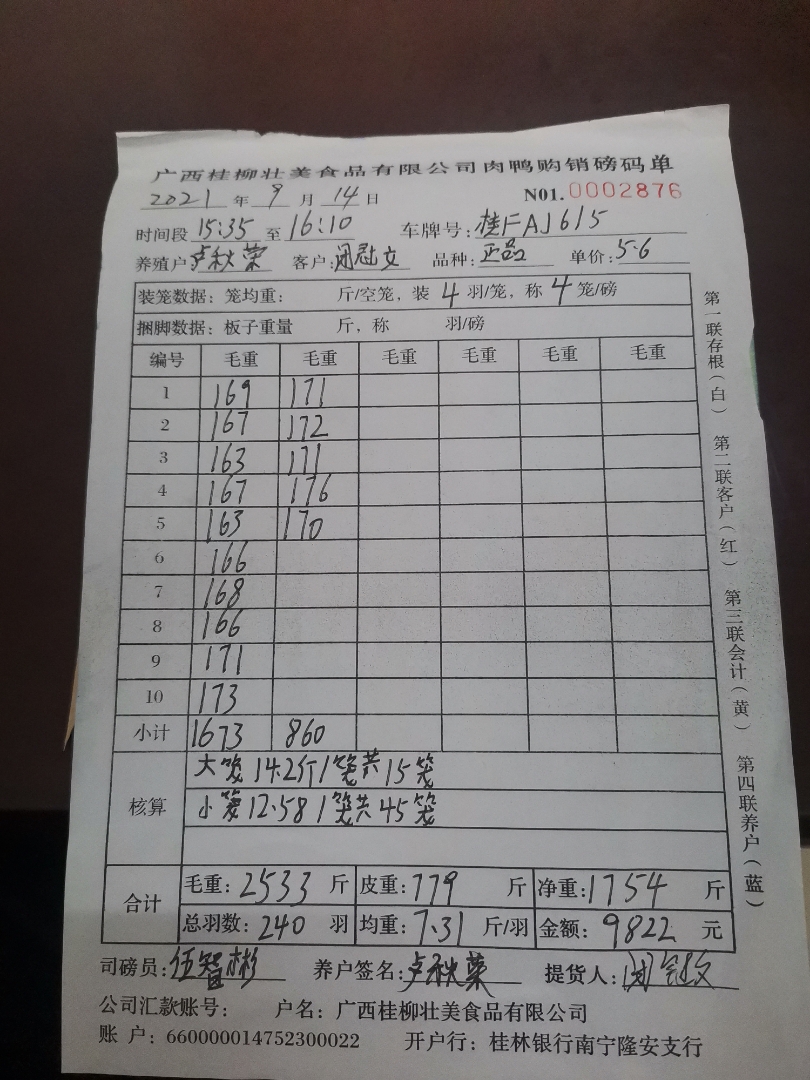 广西桂柳壮美食品有限公司肉鸭购销磅码单
2021 年 9 月 14 日 N01. 0002876
时间段 15:35 至 16:10 车牌号: 桂FAJ615
养殖户 卢秋荣 客户: 闭 文 品种: 正品 单价: 5.6
装笼数据: 笼均重: 斤/空笼, 装 4 羽/笼, 称 4 笼/磅
捆脚数据: 板子重量 斤, 称 羽/磅
编号 毛重 毛重 毛重 毛重 毛重 毛重
1 169 171
2 167 172
3 163 171
4 167 176
5 163 170
6 166
7 168
8 166
9 171
10 173
小计 1673 860
核算
大笼 14.2斤1笼共15笼
小笼 12.58 1笼共45笼
合计
毛重: 2533 斤 皮重: 779 斤 净重: 1754 斤
总羽数: 240 羽 均重: 7.31 斤/羽 金额: 9822 元
司磅员: 伍智彬 养户签名: 卢秋荣 提货人:
公司汇款账号: 户名: 广西桂柳壮美食品有限公司
账 户: 660000014752300022 开户行: 桂林银行南宁隆安支行
第一联存根(白) 第二联客户(红) 第三联会计(黄) 第四联养户(蓝)